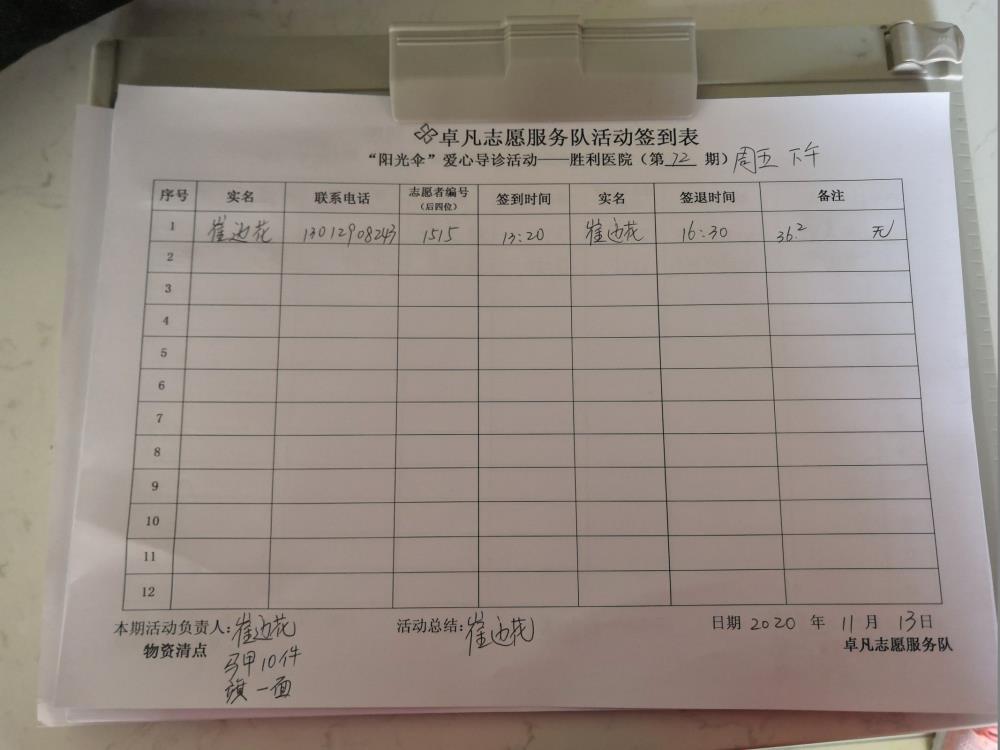 卓凡志愿服务队活动签到表
“阳光伞”爱心导诊活动——胜利医院（第72期）周五 下午
序号 实名 联系电话 志愿者编号（后四位） 签到时间 实名 签退时间 备注
1 崔迎花 13012908243 1515 13:20 崔迎花 16:30 36.2 无
2
3
4
5
6
7
8
9
10
11
12
本期活动负责人:崔迎花 活动总结:崔迎花 日期 2020 年 11 月 13日
物资清点 卓凡志愿服务队
马甲10件
旗一面